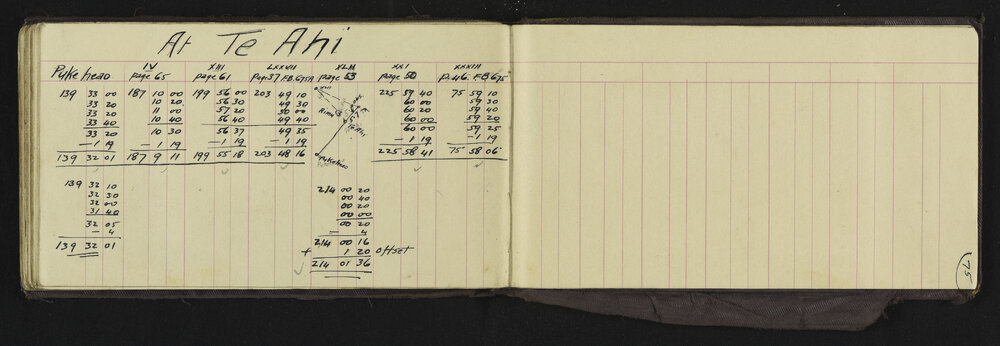 At Te Ahi
IV XIII LXXVII XLII XXI XXXIII
Pukehero page 65 page 61 page 37 F.B. 675A page 53 page 50 p. 46. F.B. 675
139 33 00 187 10 00 199 56 00 203 49 10 225 59 40 75 59 10
33 20 10 20 56 30 49 30 60 00 59 30
33 20 11 00 57 20 50 00 60 20 59 40
33 40 10 40 56 40 49 40 60 00 59 20
33 20 10 30 56 37 49 35 60 00 59 25
— 1 19 — 1 19 — 1 19 — 1 19 — 1 19 — 1 19
139 32 01 187 9 11 199 55 18 203 48 16 225 58 41 75 58 06
Te Ahi
Pukehero
139 32 10 214 00 20
32 30 00 40
32 00 00 20
31 40 00 00
32 05 00 20
— 4 — 4
139 32 01 214 00 16
+ 1 20 offset
214 01 36
75